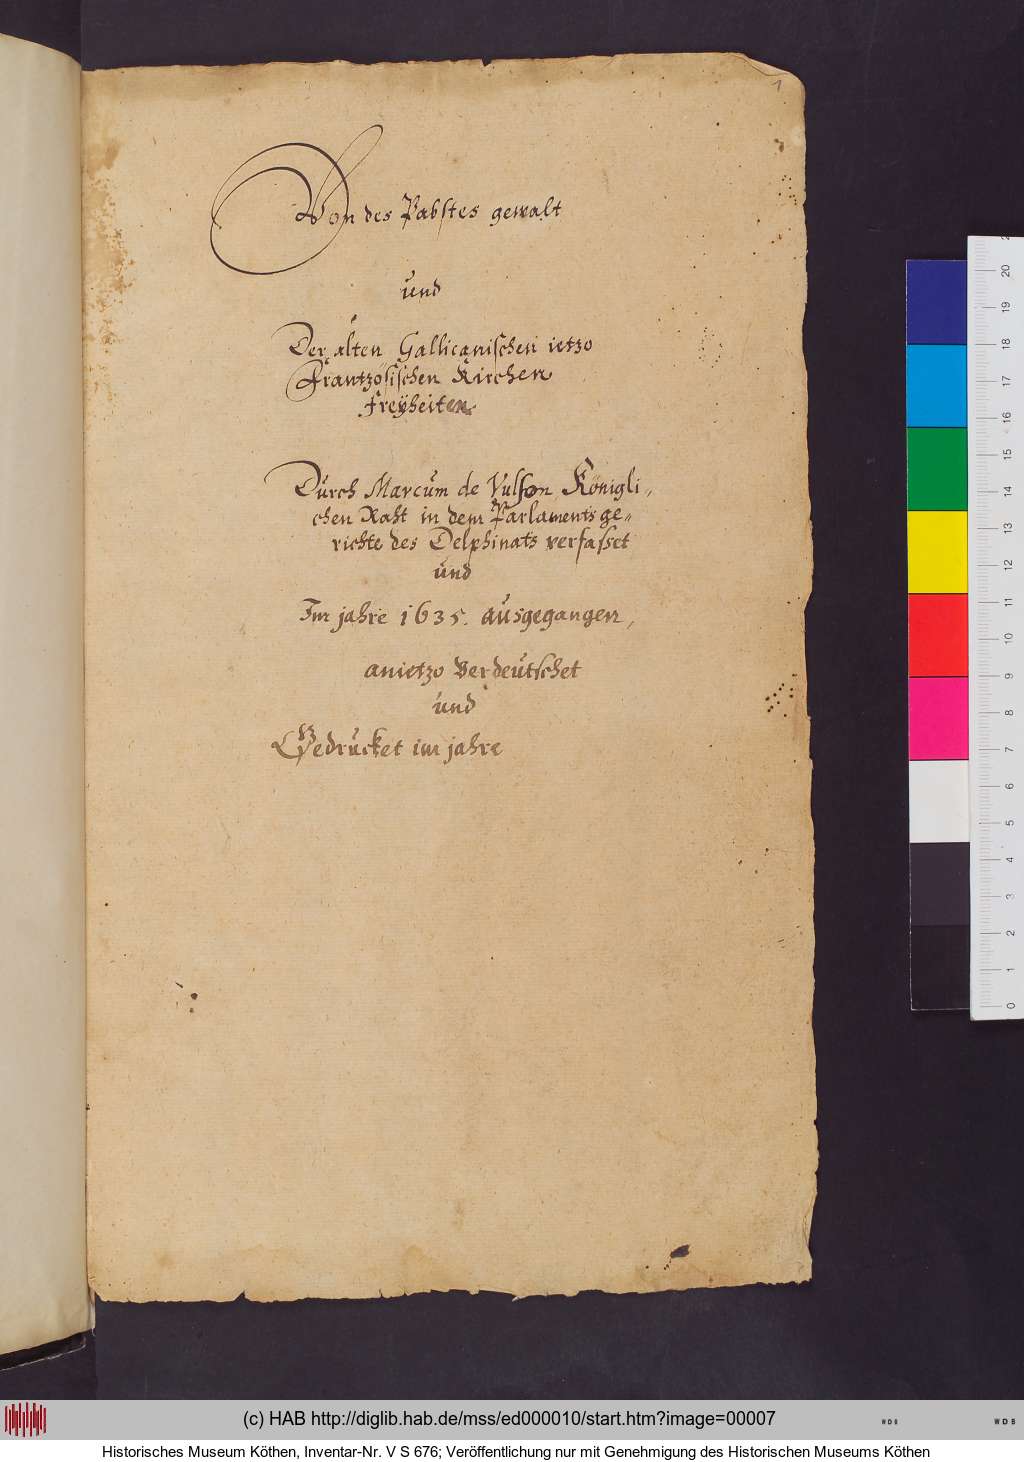 1
Von des Pabstes gewalt
und
Der alten Gallicanischen ietzo
Frantzosischen Kirchen
freÿheiten
Durch Marcum de Vulson, Königli-
chen Raht in dem Parlaments ge-
richte des Delphinats verfasset
und
Im jahre 1635. ausgegangen,
anietzo Verdeutschet
und
Gedrucket im jahre
20
19
18
17
16
15
14
13
12
11
10
9
8
7
6
5
4
3
2
1
0
(c) HAB http://diglib.hab.de/mss/ed000010/start.htm?image=00007
WDB
WDB
Historisches Museum Köthen, Inventar-Nr. V S 676; Veröffentlichung nur mit Genehmigung des Historischen Museums Köthen